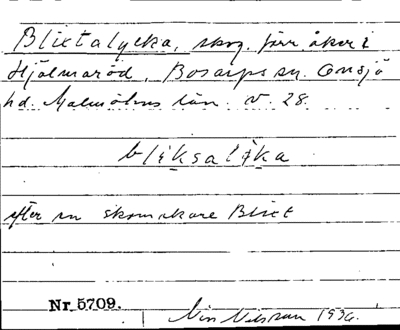 Blixtalycka, skog. förr åker i
Hjälmaröd, Bosarps sn. Onsjö
hd. Malmöhus län. V. 28.
blíksalỳka
efter en skomakare Blixt
Nr. 5709.
Nils Nilsson 1936.